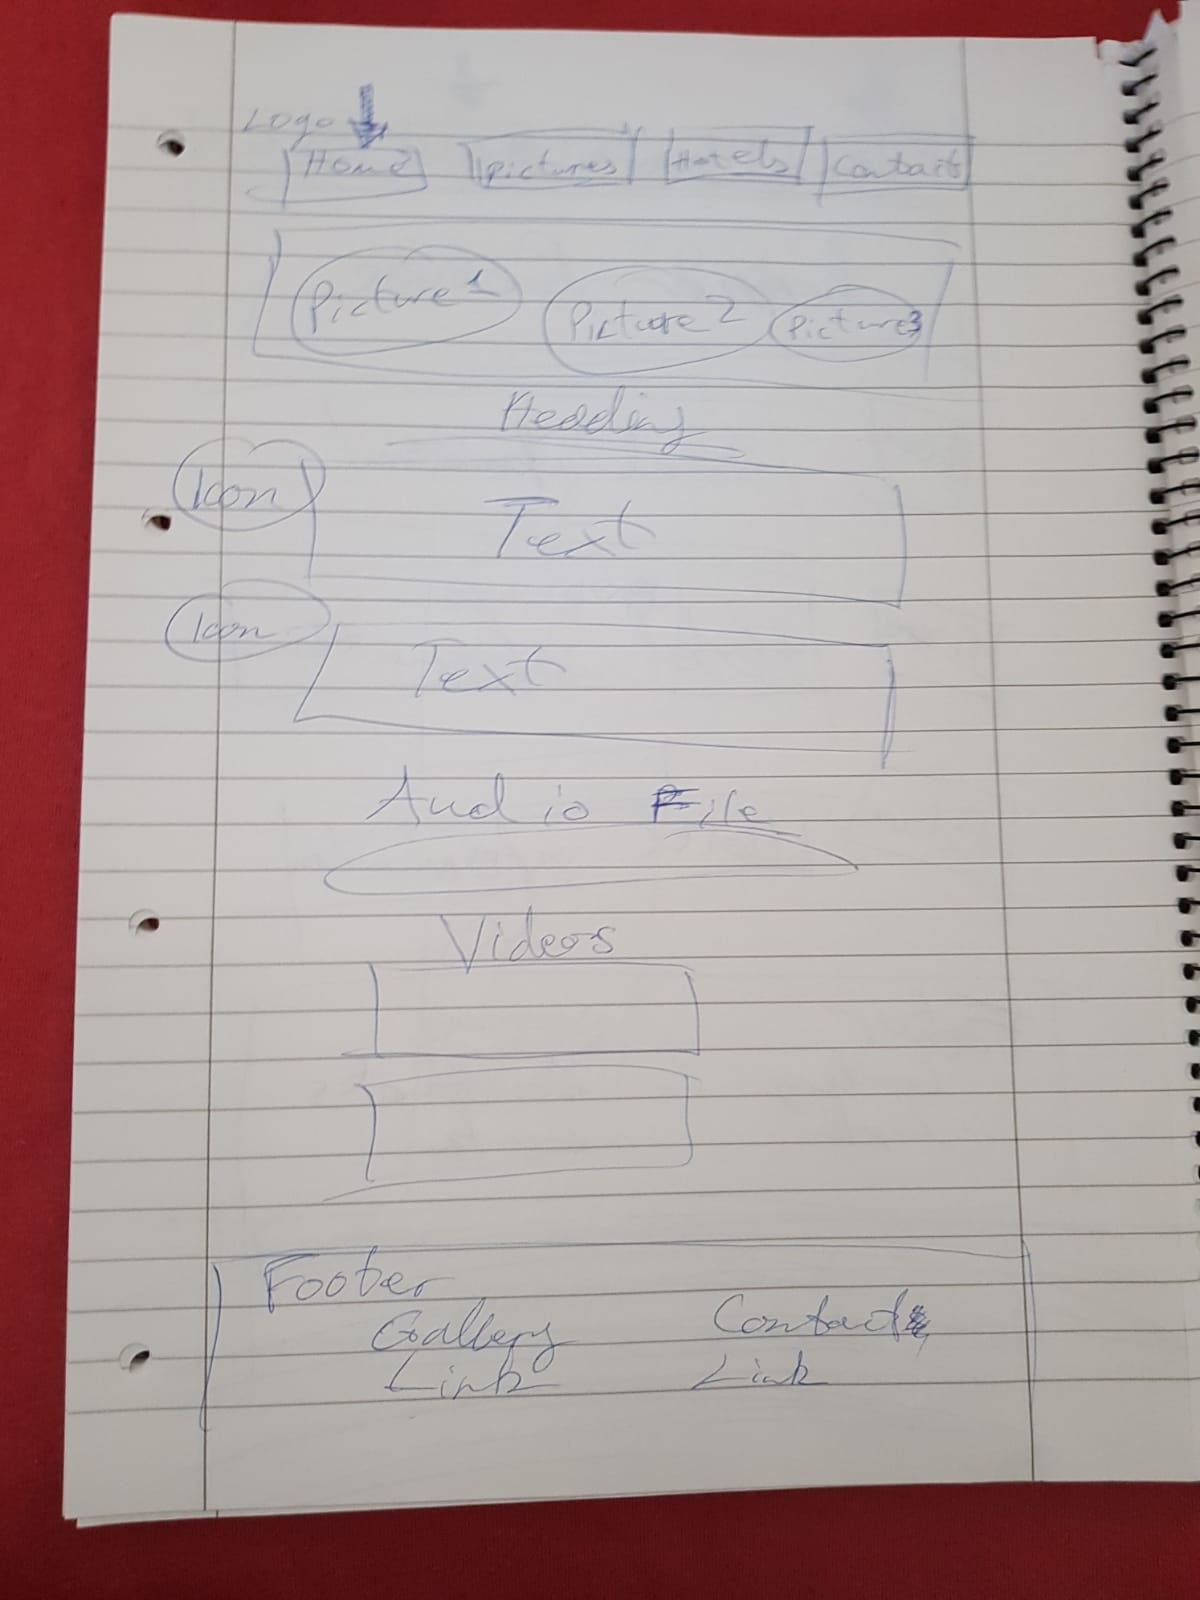 Logo
Home pictures Hotels Contact
Picture 1 Picture 2 Picture 3
Heading
Icon
Text
Icon
Text
Audio File
Videos
Footer
Gallery Contact
Link Link